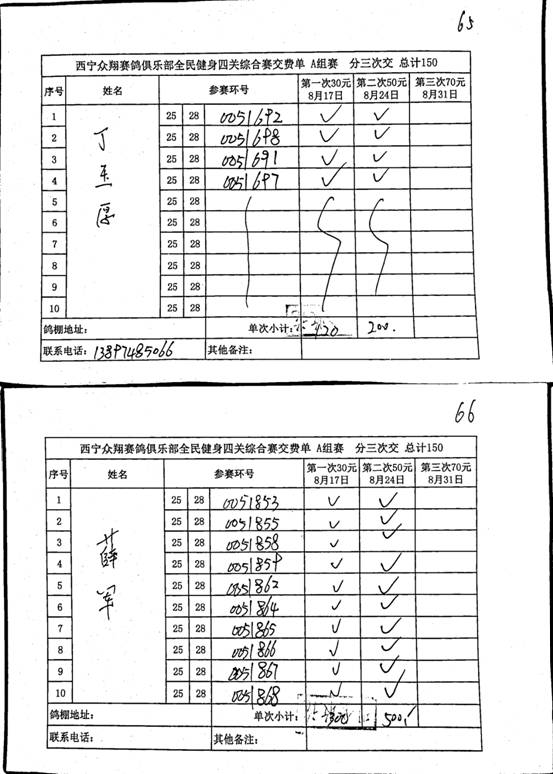 65
西宁众翔赛鸽俱乐部全民健身四关综合赛交费单 A组赛 分三次交 总计150
序号 姓名 参赛环号 第一次30元 8月17日 第二次50元 8月24日 第三次70元 8月31日
1 25 28 0051692 ✓ ✓
2 25 28 0051698 ✓ ✓
3 25 28 0051691 ✓ ✓
4 25 28 0051697 ✓ ✓
丁玉厚
5 25 28
6 25 28
7 25 28
8 25 28
9 25 28
10 25 28
鸽棚地址: 单次小计: 120 200.
联系电话: 13897485066 其他备注:
66
西宁众翔赛鸽俱乐部全民健身四关综合赛交费单 A组赛 分三次交 总计150
序号 姓名 参赛环号 第一次30元 8月17日 第二次50元 8月24日 第三次70元 8月31日
1 25 28 0051853 ✓ ✓
2 25 28 0051855 ✓ ✓
3 25 28 0051858 ✓ ✓
4 25 28 0051859 ✓ ✓
薛军
5 25 28 0051862 ✓ ✓
6 25 28 0051864 ✓ ✓
7 25 28 0051865 ✓ ✓
8 25 28 0051866 ✓ ✓
9 25 28 0051867 ✓ ✓
10 25 28 0051868 ✓ ✓
鸽棚地址: 单次小计: 300 500.
联系电话: 其他备注: